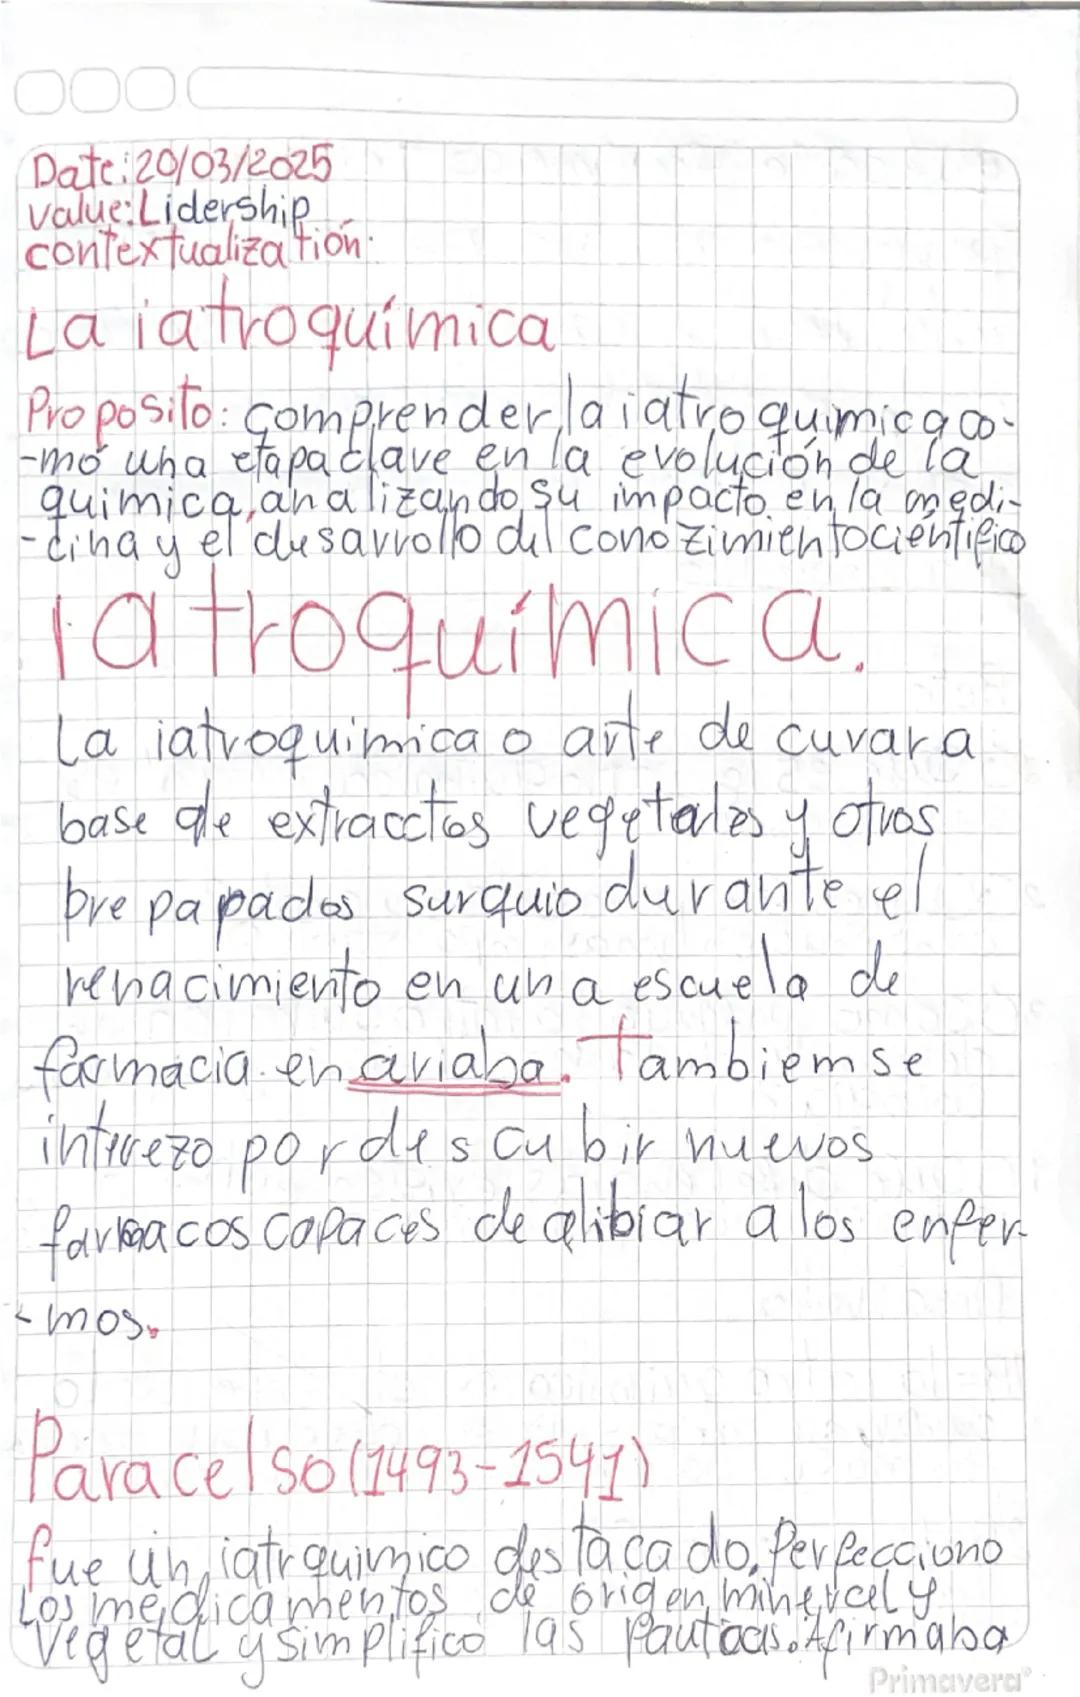 Date: 20/03/2025
value: Lidership
contextualization:
La iatroquímica
Proposito: comprender la iatroquimica co-
-mo una etapa clave en la evolución de la
quimica, analizando su impacto en la medi-
-cina y el desarrollo del conozimiento cientifico
Iatroquímica.
La iatroquimica o arte de curar a
base de extracctos vegetales y otros
prepapados surquio durante el
renacimiento en una escuela de
farmacia en ariaba. Tambiem se
interezo por descubir nuevos
farmacos capaces de alibiar a los enfer-
-mos.
Paracelso (1493-1541)
fue un iatrquimico destacado. Perfecciono
Los medicamentos de origen minercel y
vegetal y simplifico las pautas. Afirmaba
Primavera